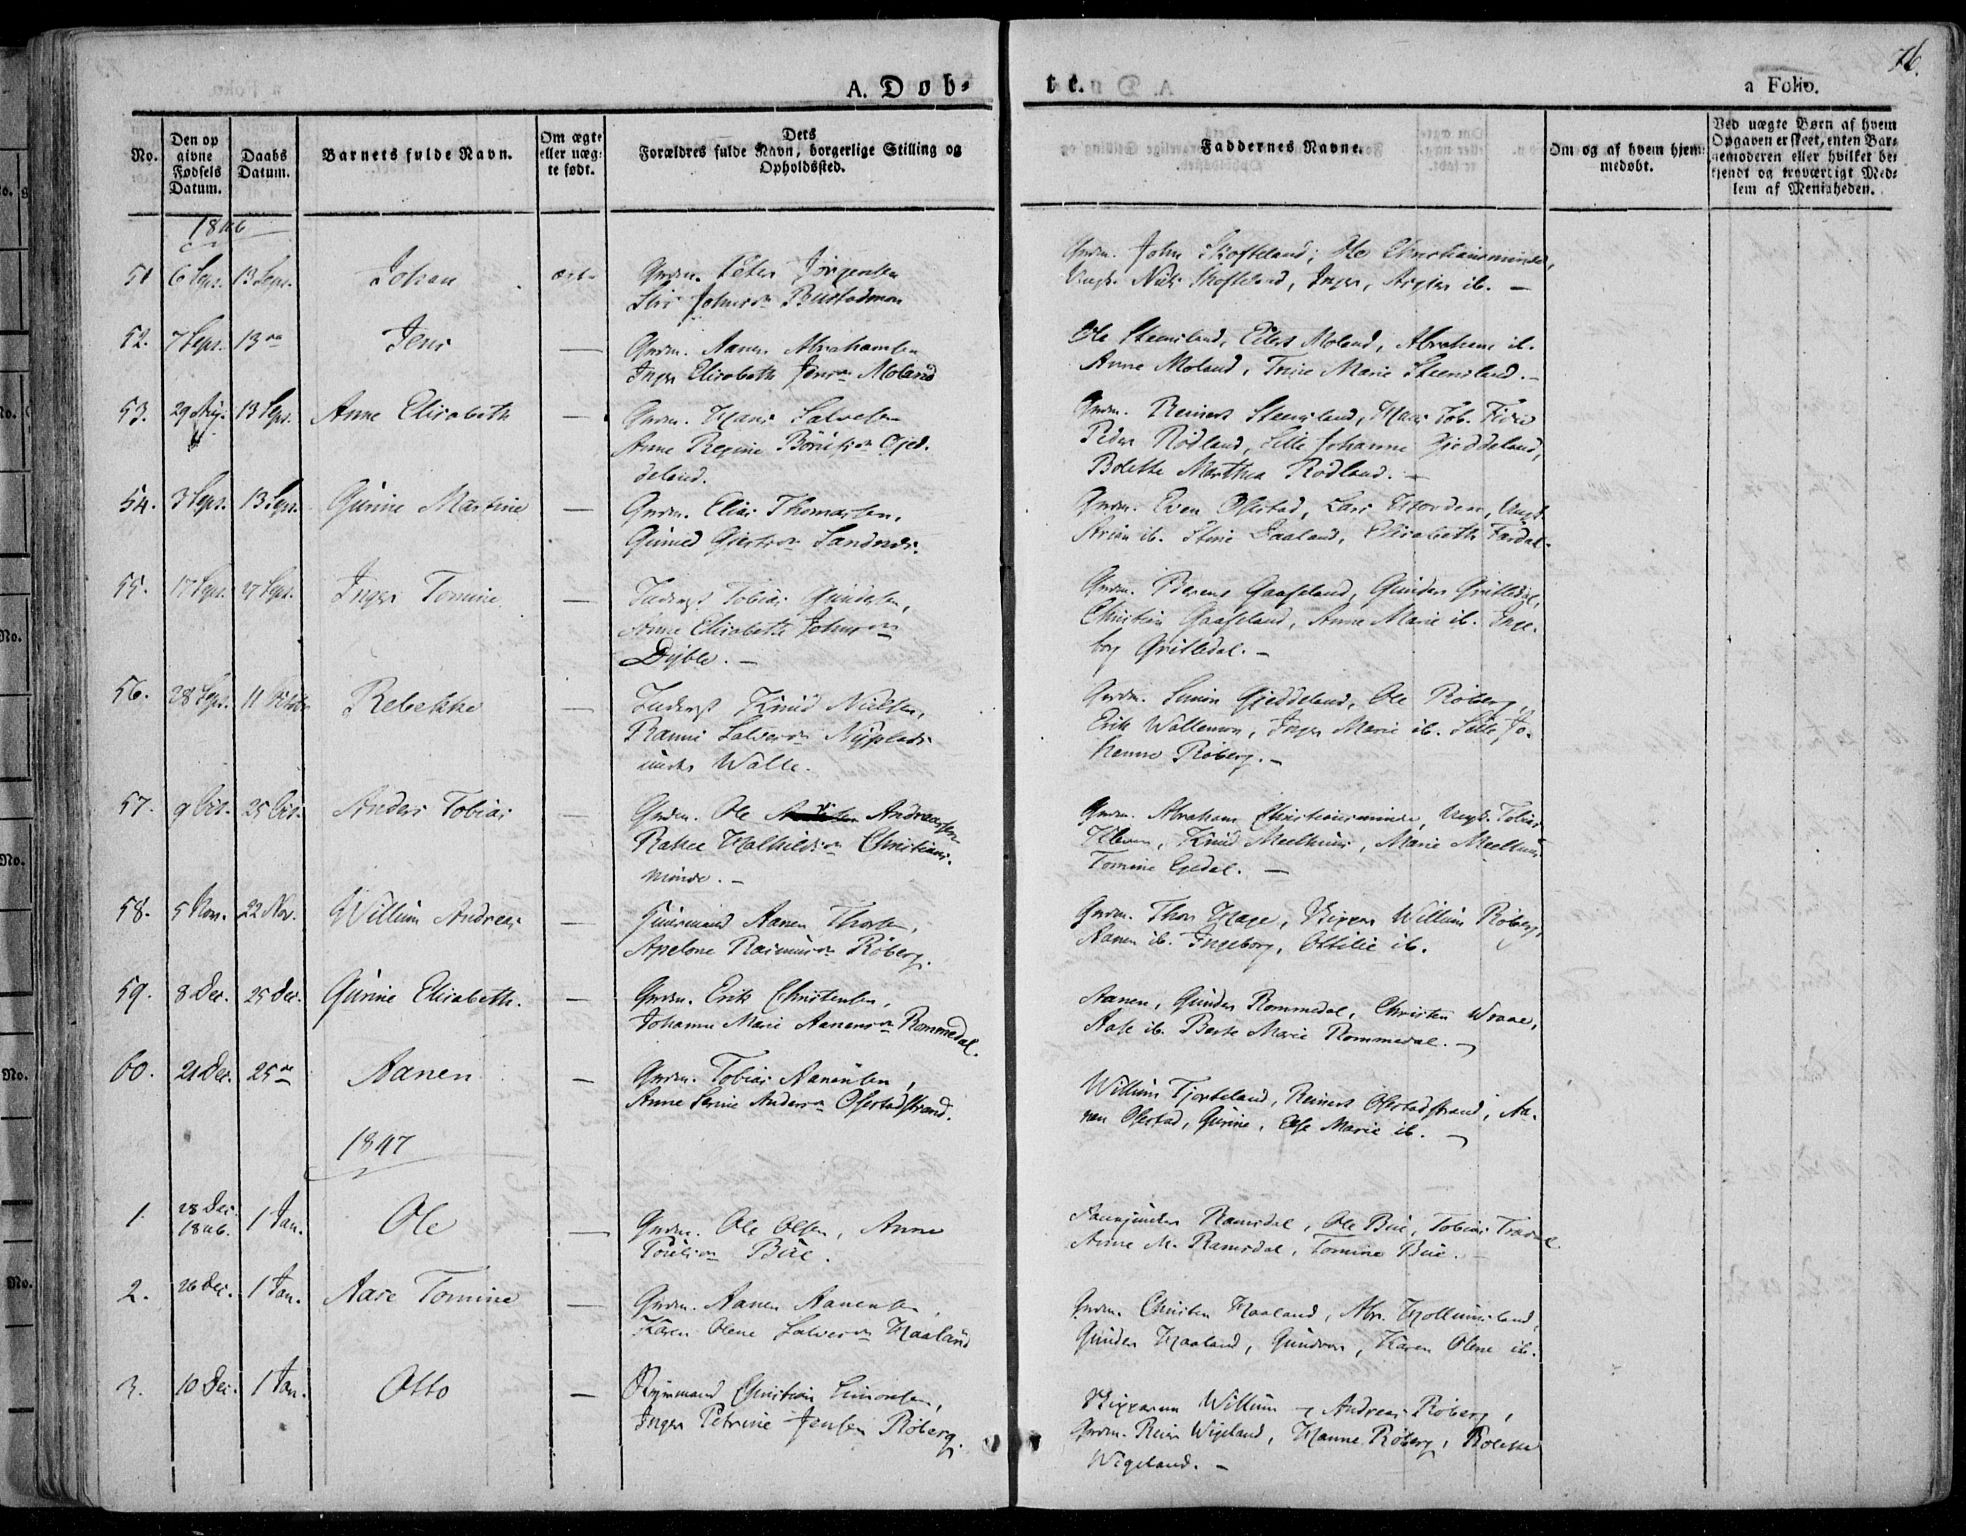 76.
A. Døb=
te.
a Folio.
No.
Den op
givne
Fødsels
Datum.
Daabs
Datum.
Barnets fulde Navn.
Om ægte
eller uæg=
te født.
Dets
Forældres fulde Navn, borgerlige Stilling og
Opholdssted.
Faddernes Navne.
Om og af hvem hjem=
medøbt.
Ved uægte Børn af hvem
Opgaven er skeet, enten Bar=
nemoderen eller hvilket be
kjendt og troværdigt Med=
lem af Menigheden.
1846
51 6 Sept. 13 Sept. Johan ægte Grdm. Peter Jørgensen
Siri Johnsdn Bustadmon
Grdm. John Skofteland; Ole Christiansminde,
Ungk. Niels Skofteland, Inger, ib. —
52. 7 Sept. 13 Jens — Grdm. Aanen Abrahamsen
Inger Elisabeth Jensdn Moland
Ole Steensland, Eilert Moland, Abraham ib.
Anne Moland, Trine Marie Steensland. —
53. 29 Aug. 13 Sept. Anne Elisabeth — Grdm. Hans Salvesen
Anne Regine Gjed-
deland.
Grdm. Reinert Steensland, Hans Tob.
Peder Rødland, Lille Johanne Gjeddeland,
Bolette Martha Rødland. —
54. 3 Sept. 13 Sept. Gurine Martine — Grdm. Elias Thomassen,
Guined Gjertsdn Sandnæs.
Grdm. Even Ofstad, Lars Ungk.
ib. Stine Daaland, Elisabeth Fardal.
55. 17 Sept. 27 Sept. Inger Tomine — Inderst Tobias Gundersen,
Anne Elisabeth Johnsdn
Dyble. —
Grdm. Berent Gaaseland, Gunder Qvitledal,
Christian Gaaseland, Anne Marie ib. Inge-
borg Qvitledal. —
56. 28 Sept. 11 Rebekke — Inderst Knud Nielsen,
Ranni Salvesdn Nyplads
under Walle.
Grdm. Simon Gjeddeland, Ole Røberg,
Erik Wallemon, Inger Marie ib. Lille Jo-
hanne Røberg. —
57. 9 Oct. 25 Oct. Anders Tobias — Grdm. Ole Andreassen
Rakel Christians-
minde. —
Grdm. Abraham Christiansminde, Ungk. Tobias
Kleven, Knud Meelhuus, Marie Meelhuus
Tomine Egedal. —
58. 5 Nov. 22 Nov. Willum Andreas — Huusmand Aanen Thorsen,
Apelone Rasmusdn Røberg.
Grdm. Thor Hage, Skipper Willum Røberg,
Aanen ib. Ingeborg, Ottilie ib.
59. 8 Dec. 25 Dec. Gurine Elisabeth. — Grdm. Erik Christensen,
Johanne Marie Aanensdn Rommedal.
Aanen, Gunder Rommedal, Christen Wraae,
Aase ib. Berte Marie Rommedal. —
60. 21 Dec. 25 Aanen — Grdm. Tobias Aanensen,
Anne Serine Andersdn Ofstadstrand.
Willum Tjorteland, Reinert Ofstadstrand, Aa-
nen Ofstad, Gurine, Else Marie ib. —
1847
1. 28 Dec.
1846. 1 Jan. Ole — Grdm. Ole Olsen, Anne
Poulsdn Bue.
Ramsdal, Ole Bue, Tobias
Anne M. Ramsdal, Tomine Bue. —
2. 26 Dec. 1 Jan. Aase Tomine — Grdm. Aanen Aanensen,
Karen Olene Salvesdn Haaland
Grdm. Christen Haaland, Abr. Hollumsland,
Gunder Haaland, Gundvor, Karen Olene ib.
3. 10 Dec. 1 Jan. Otto — Christian Simonsen,
Inger Petrine Jensen Røberg.
Skipperne Willum og Andreas Røberg,
Grdm. Reier Wigeland, Hanne Røberg,
Wigeland. —